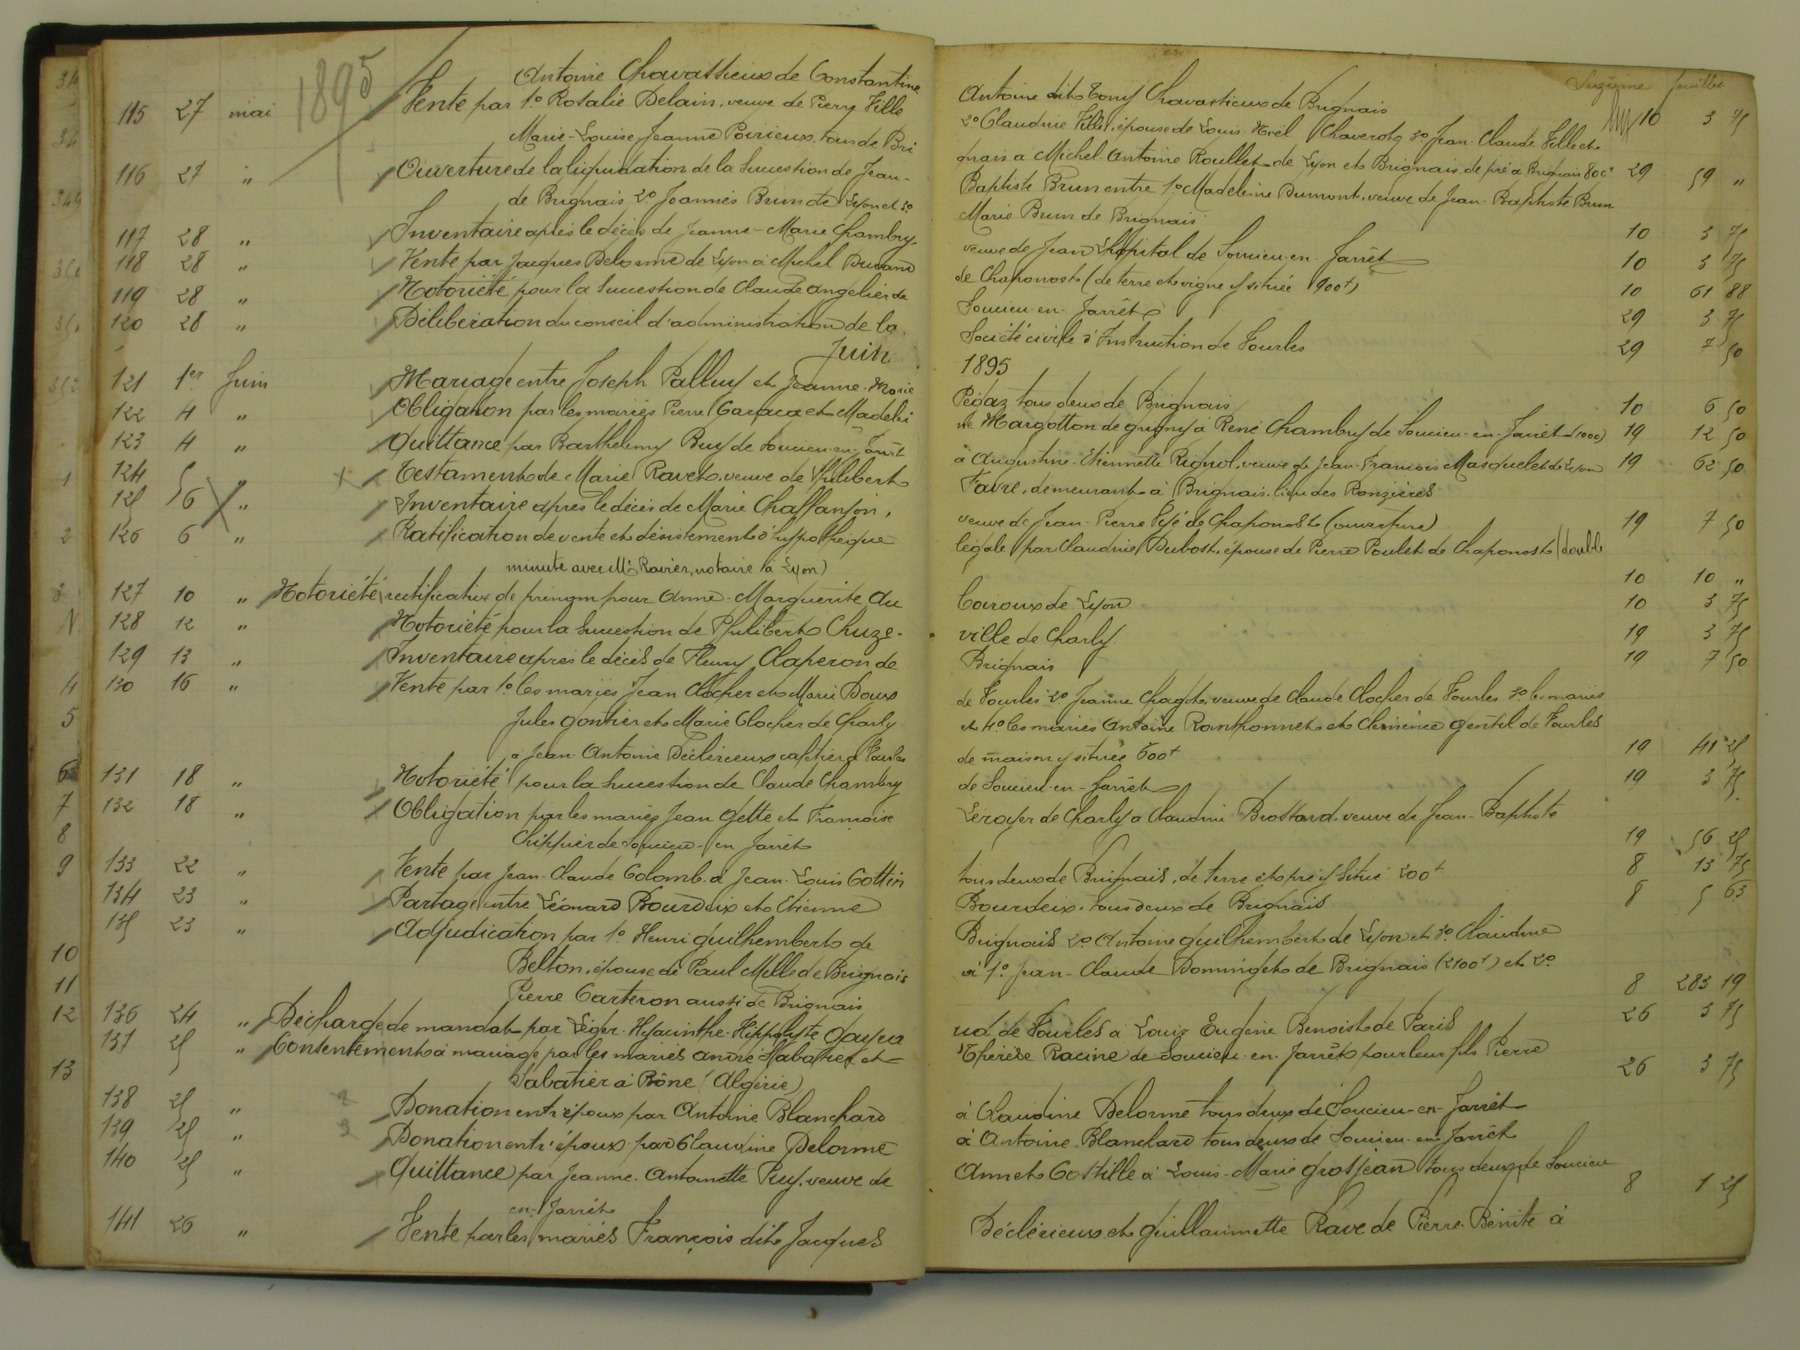 1895
Sixième feuillet
Antoine Chavassieux de Constantine
Antoine dit Tony Chavassieux de Brignais 10 3 75
115 27 mai Vente par 1º Rosalie Delain, veuve de Pierry Fille
2º Claudine Fille, épouse de Louis Noël Chaverot, 3º Jean Claude Fille et
Marie-Louise Jeanne Poirieux, tous de Bri
gnais à Michel Antoine Roullet de Lyon et Brignais, de pré à Brignais 800f 29 59 "
116 27 " Ouverture de la liquidation de la Succession de Jean-
Baptiste Brun entre 1º Madeleine Dumont, veuve de Jean-Baptiste Brun
de Brignais 2º Joannès Brun de Lyon et 3º
Marie Brun de Brignais 10 3 75
117 28 " Inventaire après le décès de Jeanne-Marie Chambry,
veuve de Jean Lhopital de Soucieu-en-Jarrêt 10 3 75
118 28 " Vente par Jacques Delorme de Lyon à Michel Durand
de Chaponost (de terre et vigne y située 900f) 10 61 88
119 28 " Notoriété pour la Succession de Claude Angelier de
Soucieu-en-Jarrêt 29 3 75
120 28 " Délibération du conseil d'administration de la
Société civile d'Instruction de Vourles 29 7 50
Juin 1895
121 1er Juin Mariage entre Joseph Palluy et Jeanne-Marie
Péaz tous deux de Brignais 10 6 50
122 4 " Obligation par les mariés Pierre Garara et Madelei
ne Margotton de Grigny à René Chambry de Soucieu-en-Jarrêt (1000) 19 12 50
123 4 " Quittance par Barthélemy Buy de Soucieu-en-Jarrêt
à Augustine-Etiennette Rignol, veuve de Jean-François Masquelet de Lyon 19 62 50
124 5 " Testament de Marie Ravet, veuve de Philibert
Favre, demeurant à Brignais, lieu des Ronzières
125 6 " Inventaire après le décès de Marie Chaffanjon,
veuve de Jean-Pierre de Chaponost (ouverture) 19 7 50
126 6 " Ratification de vente et désistement d'hypothèque
légale par Claudine Dubost, épouse de Pierre Poulet de Chaponost (double
minute avec Me Ravier, notaire à Lyon) 10 10 "
127 10 " Notoriété rectificative de prénom pour Anne-Marguerite Au
Coiroux de Lyon 10 3 75
128 12 " Notoriété pour la Succession de Philibert Chuze-
ville de Charly 19 3 75
129 13 " Inventaire après le décès de Fleury Claperon de
Brignais 19 7 50
130 16 " Vente par 1º les mariés Jean Clocher et Marie Doux
de Vourles 2º Jeanne veuve de Claude Clocher de Vourles 3º les mariés
Jules Gontier et Marie Clocher de Charly
et 4º les mariés Antoine Ranthonnet et Clémence Gentil de Vourles
à Jean Antoine Déclérieux cafetier à Vourles
de maison y située 600f 19 41 25
131 18 " Notoriété pour la Succession de Claude Chambry
de Soucieu-en-Jarrêt 19 3 75
132 18 " Obligation par les mariés Jean Gette et Françoise
Léroyer de Charly à Claudine Brossard, veuve de Jean-Baptiste
Chippier de Soucieu-en-Jarrêt 19 56 25
133 22 " Vente par Jean-Claude Colomb à Jean-Louis Cottin
tous deux de Brignais, de terre et pré y situé 200f 8 13 75
134 23 " Partage entre Léonard Bourdeix et Etienne
Bourdeix, tous deux de Brignais 8 5 63
135 23 " Adjudication par 1º Henri Guilhembert de
Brignais 2º Antoine Guilhembert de Lyon et 3º Claudine
Belton, épouse de Paul Mille de Brignais
à 1º Jean-Claude Dominget de Brignais (2100f) et 2º
Pierre Carteron aussi de Brignais 8 283 19
136 24 " Décharge de mandat par Léger-Hyacinthe-Hippolyte
de Vourles à Louis Eugène Benoist de Paris 26 3 75
137 25 " Consentement à mariage par les mariés André Sabatier et
Thérèse Racine de Soucieu-en-Jarrêt pour leur fils Pierre
Sabatier à Bône (Algérie) 26 3 75
138 25 " Donation entr'époux par Antoine Blanchard
à Claudine Delorme tous deux de Soucieu-en-Jarrêt
139 25 " Donation entr'époux par Claudine Delorme
à Antoine Blanchard tous deux de Soucieu-en-Jarrêt
140 25 " Quittance par Jeanne-Antoinette Puy, veuve de
Annet Costille à Louis-Marie Grosjean tous deux de Soucieu
en-Jarrêt 8 1 25
141 26 " Vente par les mariés François dit Jacques
Déclérieux et Guillaumette Rave de Pierre-Bénite à